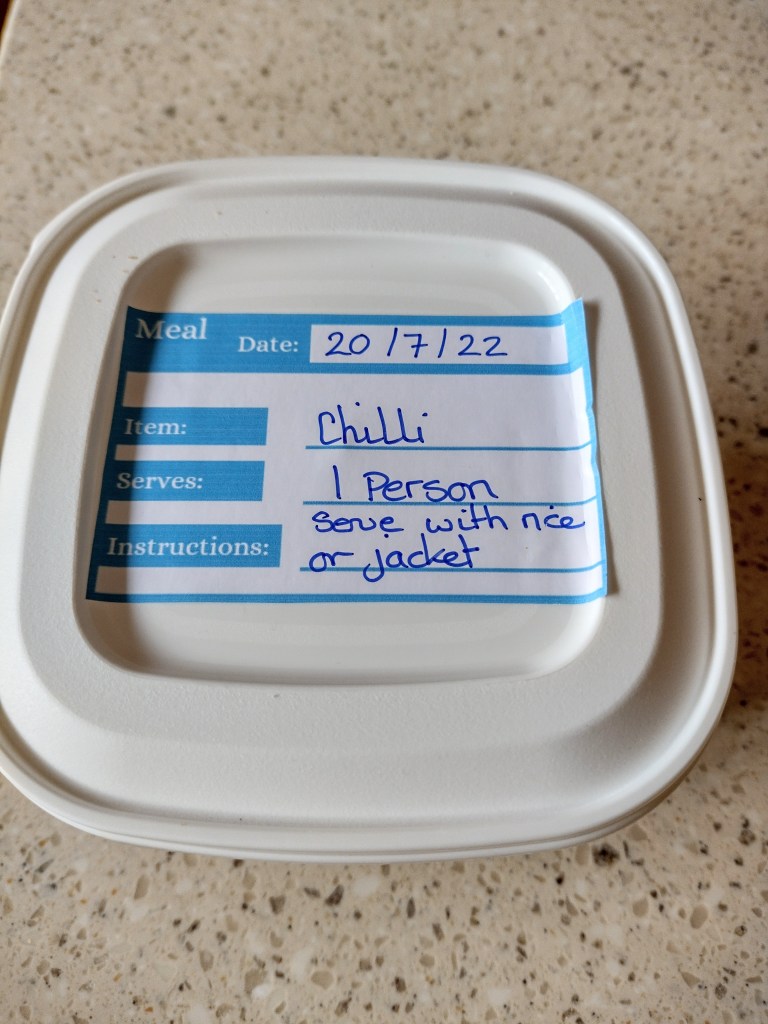 Meal Date: 20/7/22
Item: Chilli
Serves: 1 Person
Instructions: serve with rice
or jacket